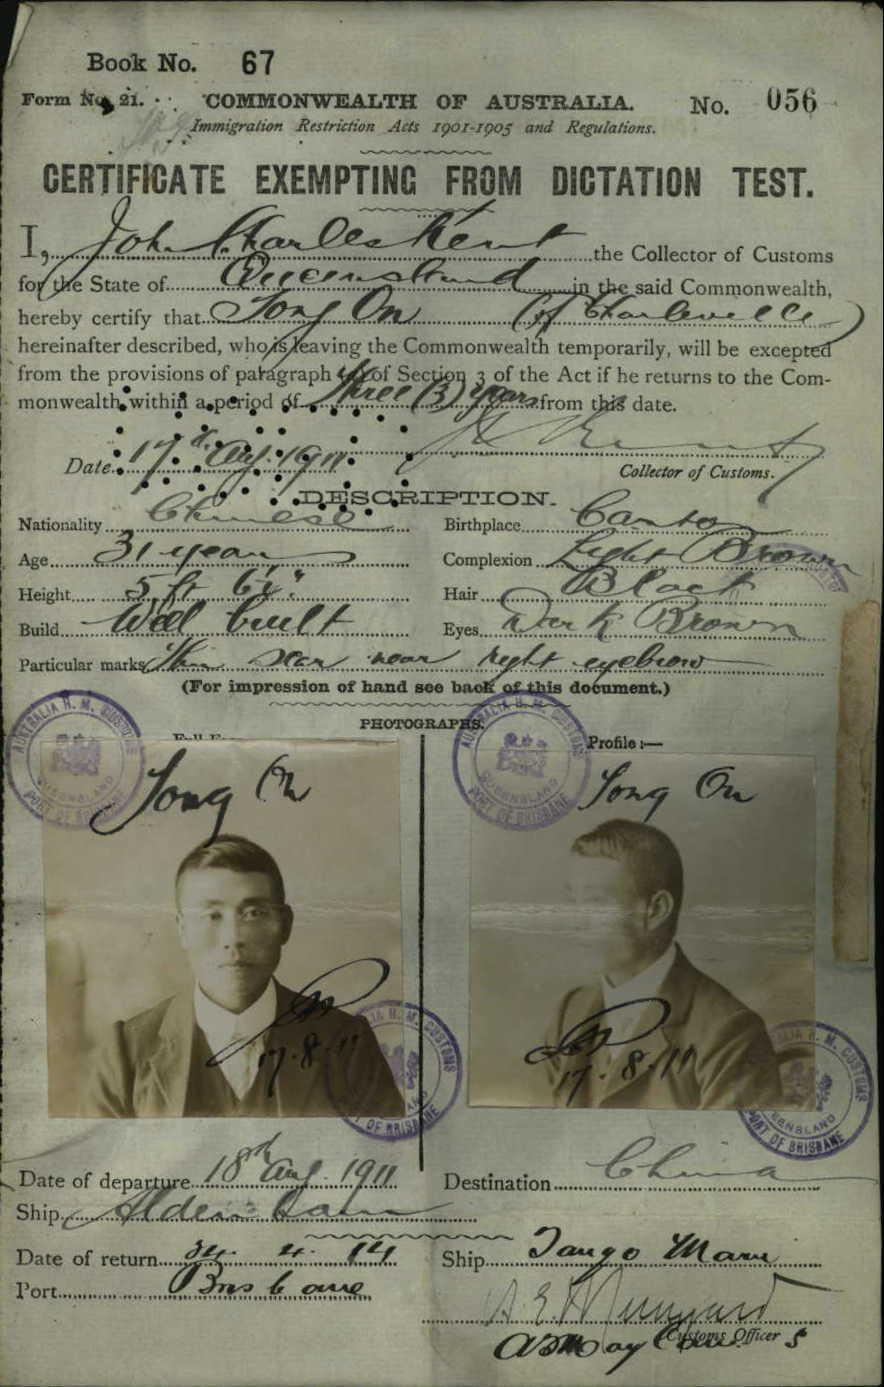 Book No. 67
Form No. 21. COMMONWEALTH OF AUSTRALIA. No. 056
Immigration Restriction Acts 1901-1905 and Regulations.
CERTIFICATE EXEMPTING FROM DICTATION TEST.
I, John Charles Kent the Collector of Customs
for the State of Queensland in the said Commonwealth,
hereby certify that Tong On (of Charleville)
hereinafter described, who is leaving the Commonwealth temporarily, will be excepted
from the provisions of paragraph of Section 3 of the Act if he returns to the Com-
monwealth within a period of three (3) years from this date.
Date 17th Aug. 1911
Collector of Customs.
DESCRIPTION.
Nationality Chinese Birthplace Canton
Age 31 years Complexion Light Brown
Height 5 ft Hair Black
Build Well built Eyes Dark Brown
Particular marks scar near right eyebrow
(For impression of hand see back of this document.)
PHOTOGRAPHS.
Profile :—
AUSTRALIA H. M. CUSTOMS
QUEENSLAND
PORT OF BRISBANE
AUSTRALIA H. M. CUSTOMS
QUEENSLAND
PORT OF BRISBANE
Tong On Tong On
17.8.11 17.8.11
H. M. CUSTOMS
PORT OF BRISBANE
H. M. CUSTOMS
QUEENSLAND
PORT OF BRISBANE
Date of departure 18th Aug. 1911 Destination China
Ship Aldenham
Date of return 4. 14 Ship Tango Maru
Port Brisbane
Customs Officer